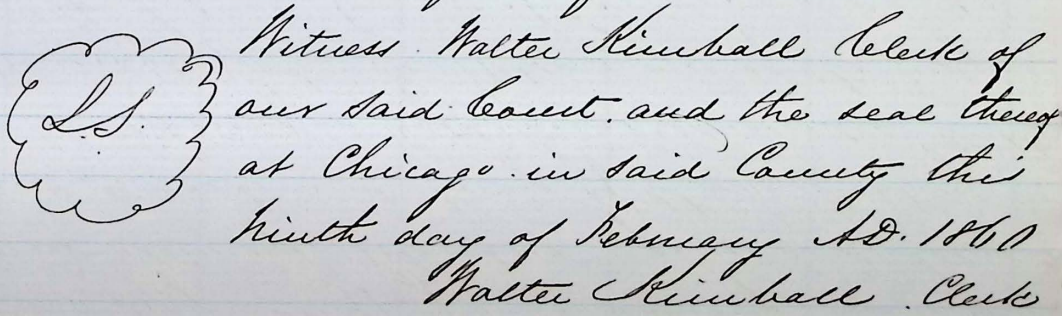 Witness. Walter Kimball Clerk of
L.S.
our said Court. and the seal thereof
at Chicago. in said County this
ninth day of February A.D. 1860
Walter Kimball. Clerk